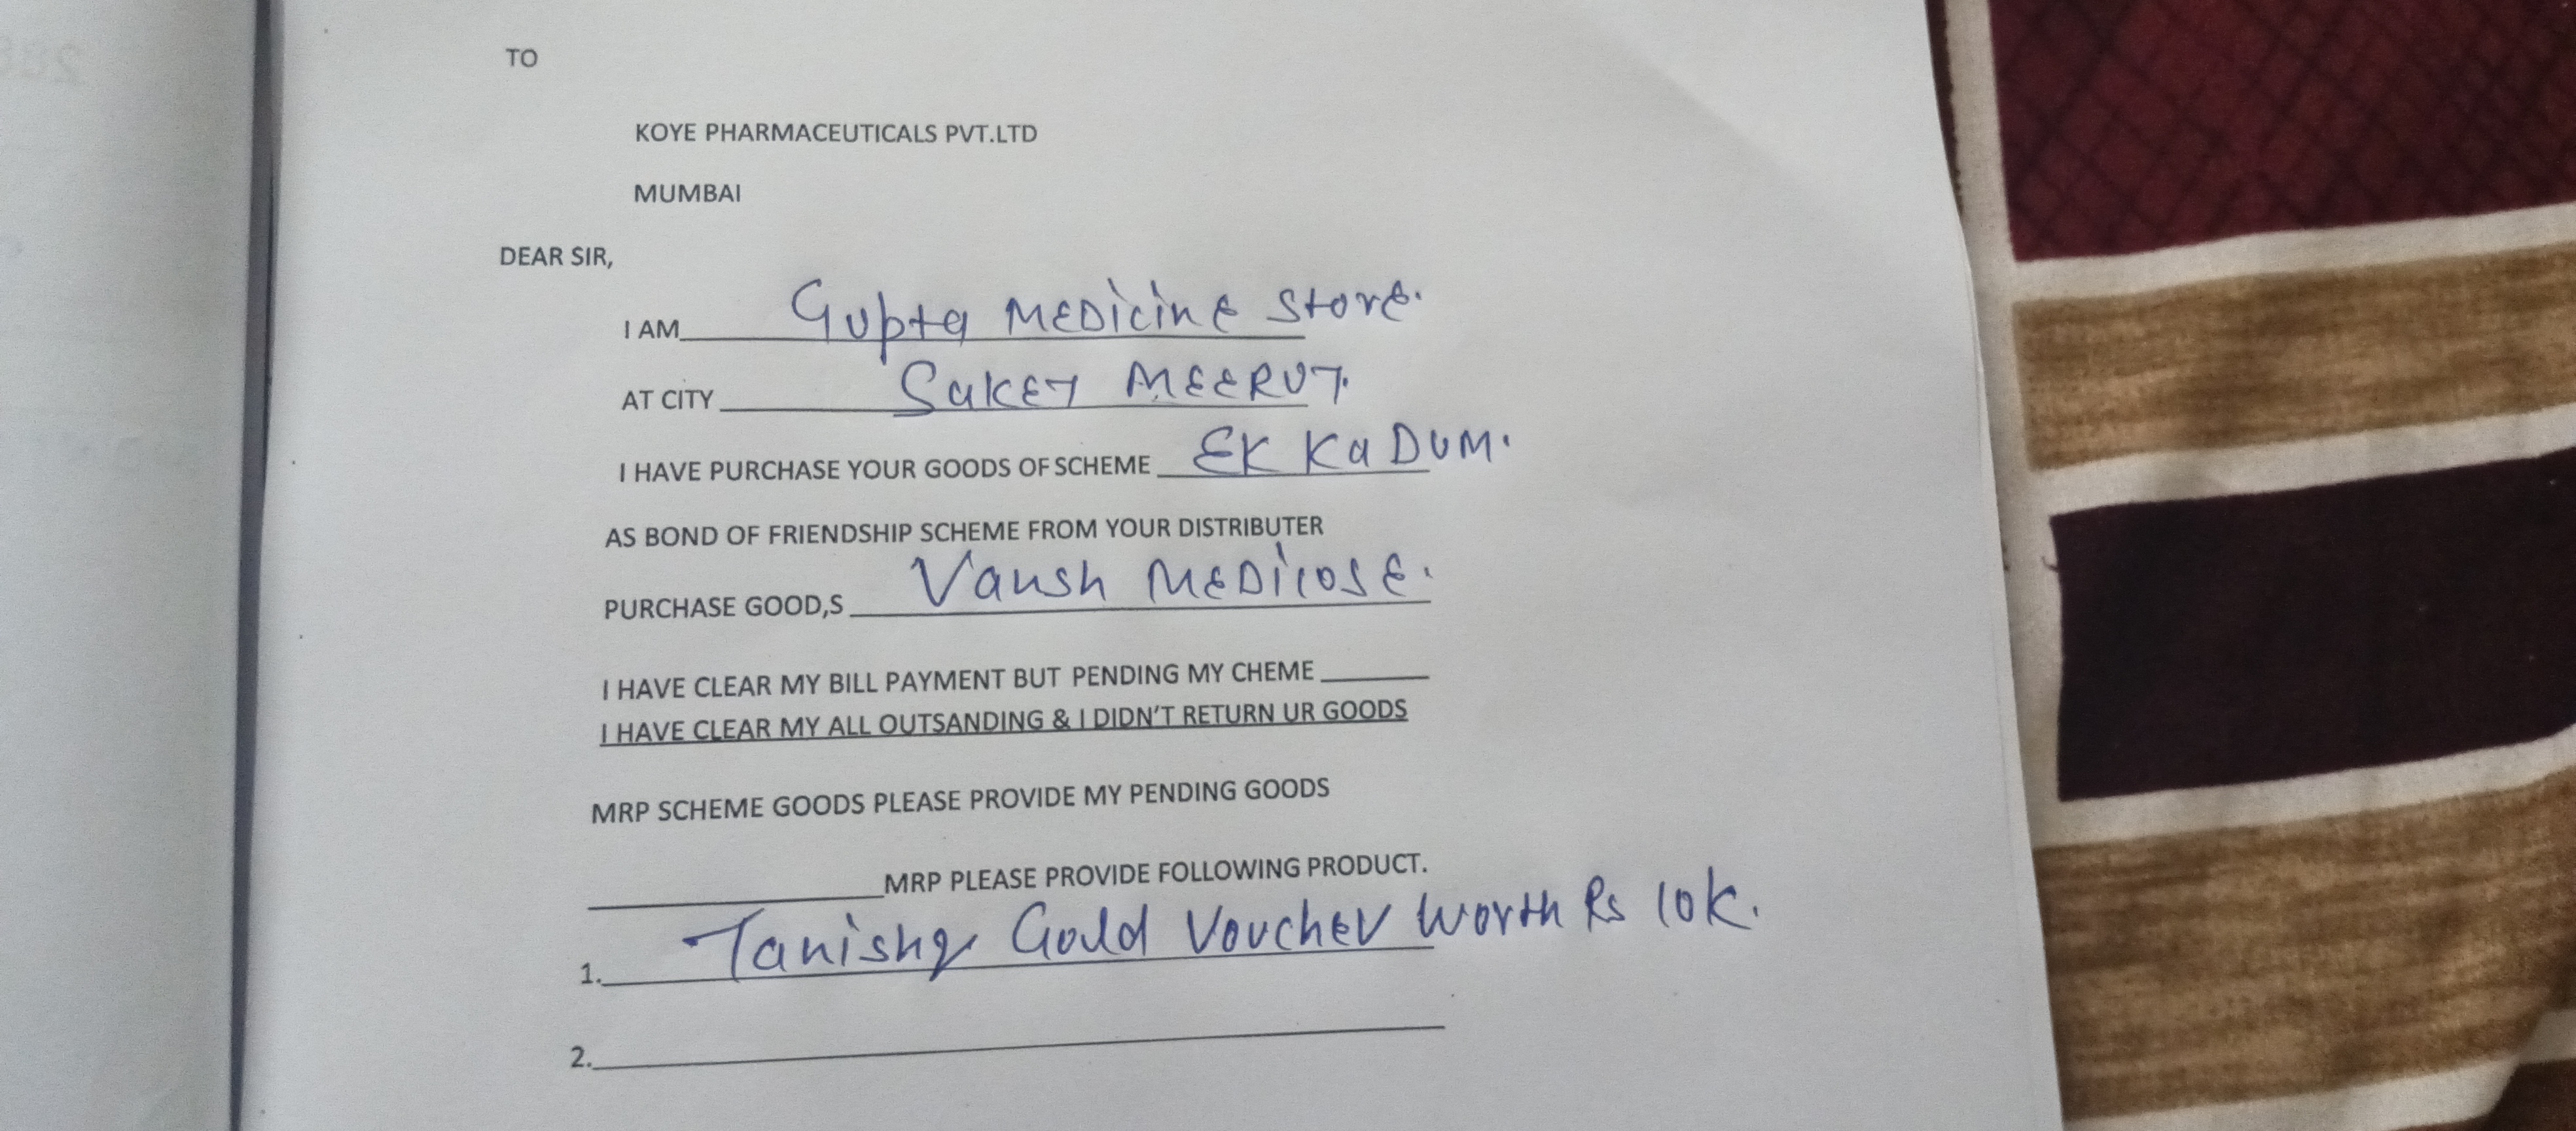 TO
KOYE PHARMACEUTICALS PVT.LTD
MUMBAI
DEAR SIR,
I AM Gupta Medicine Store.
AT CITY Saket MEERUT.
I HAVE PURCHASE YOUR GOODS OF SCHEME EK Ka DUM.
AS BOND OF FRIENDSHIP SCHEME FROM YOUR DISTRIBUTER
PURCHASE GOOD,S Vansh MEDicose.
I HAVE CLEAR MY BILL PAYMENT BUT PENDING MY CHEME
I HAVE CLEAR MY ALL OUTSANDING & I DIDN'T RETURN UR GOODS
MRP SCHEME GOODS PLEASE PROVIDE MY PENDING GOODS
MRP PLEASE PROVIDE FOLLOWING PRODUCT.
1. Tanishq Gould Voucher worth Rs 10k.
2.